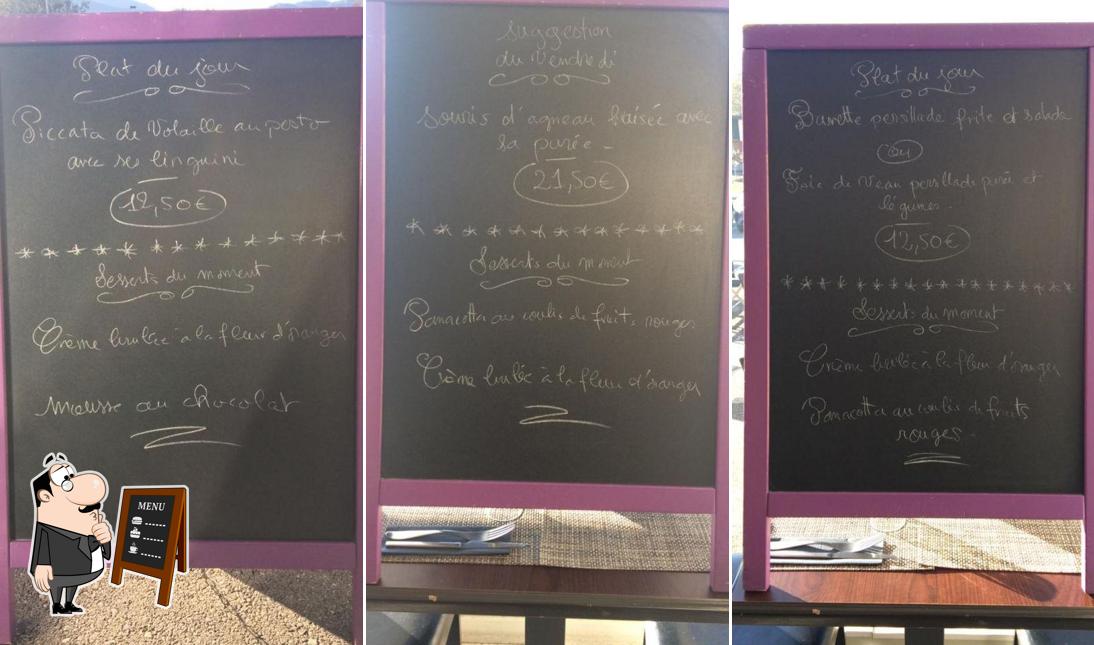 Plat du jour
Piccata de Volaille au pesto
avec ses linguini
12,50€
* * * * * * * * * * * * *
Desserts du moment
Crème brulée à la fleur d'oranger
Mousse au chocolat
MENU
suggestion
du Vendredi
Souris d'agneau braisée avec
sa purée -
21,50€
* * * * * * * * * * * * * *
Desserts du moment
Panacotta au coulis de fruits rouges
Crème brulée à la fleur d'oranger
Plat du jour
Bavette persillade frite et salade
ou
Foie de Veau persillade purée et
légumes.
12,50€
* * * * * * * * * * * * * * * *
Desserts du moment
Crème brulée à la fleur d'oranger
Panacotta au coulis de fruits
rouges.